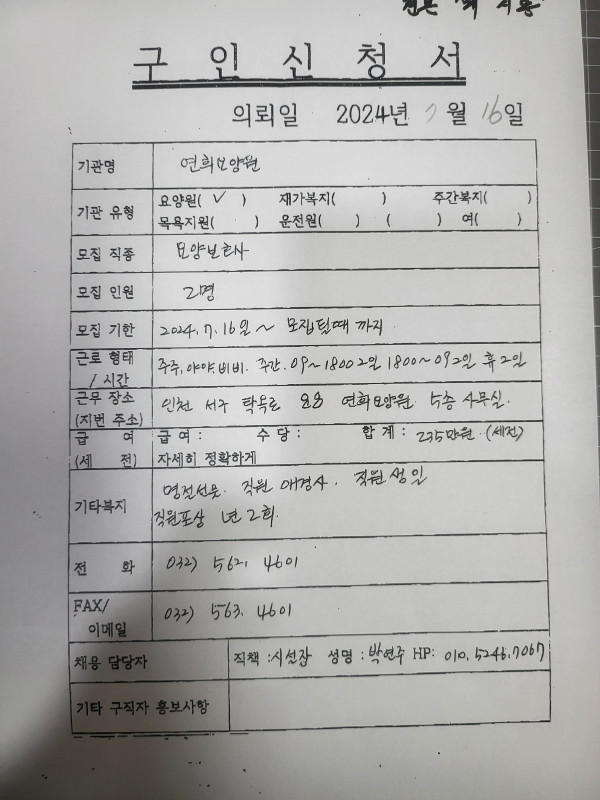 구 인 신 청 서
의뢰일 2024년 7월 16일
기관명 연희요양원
기관 유형 요양원( ✓ ) 재가복지( ) 주간복지( )
목욕지원( ) 운전원( ) ( ) 여( )
모집 직종 요양보호사
모집 인원 2명
모집 기한 2024. 7. 16일 ~ 모집될때 까지
근로 형태 / 시간 주주, 야야, 비비. 주간. 09~1800 2일 1800~09 2일 휴2일
근무 장소 (지번 주소) 인천 서구 탁옥로 연희요양원. 5층 사무실.
급 여 (세 전) 급여 : 수당 : 합계 : 235만원 (세전)
자세히 정확하게
기타복지 명절선물. 직원 애경사. 직원생일
직원포상 년 2회.
전 화 032) 562. 4601
FAX/ 이메일 032) 563. 4601
채용 담당자 직책 : 시설장 성명 : 박연주 HP: 010. 5246. 7067
기타 구직자 홍보사항